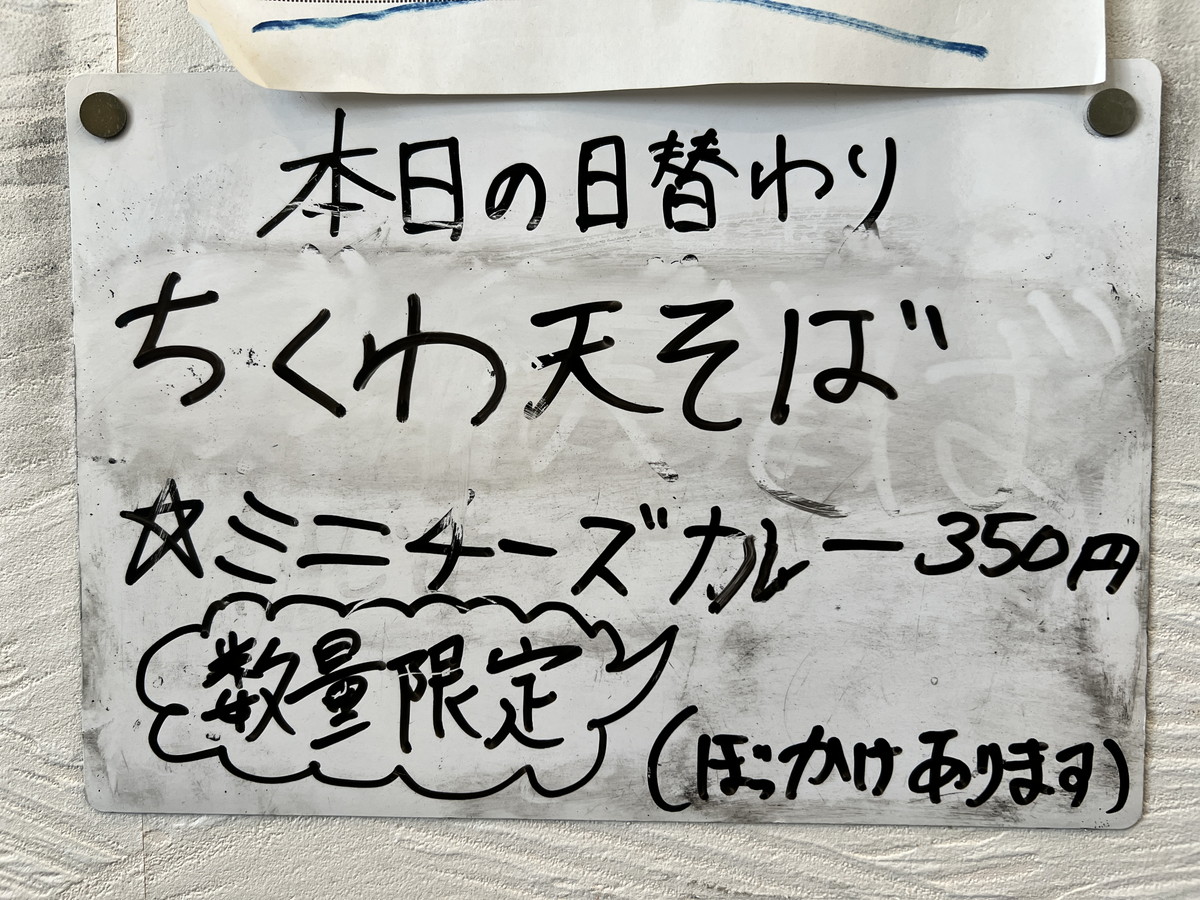 本日の日替わり
ちくわ天そば
☆ミニチーズカレー350円
数量限定
(ぼっかけあります)